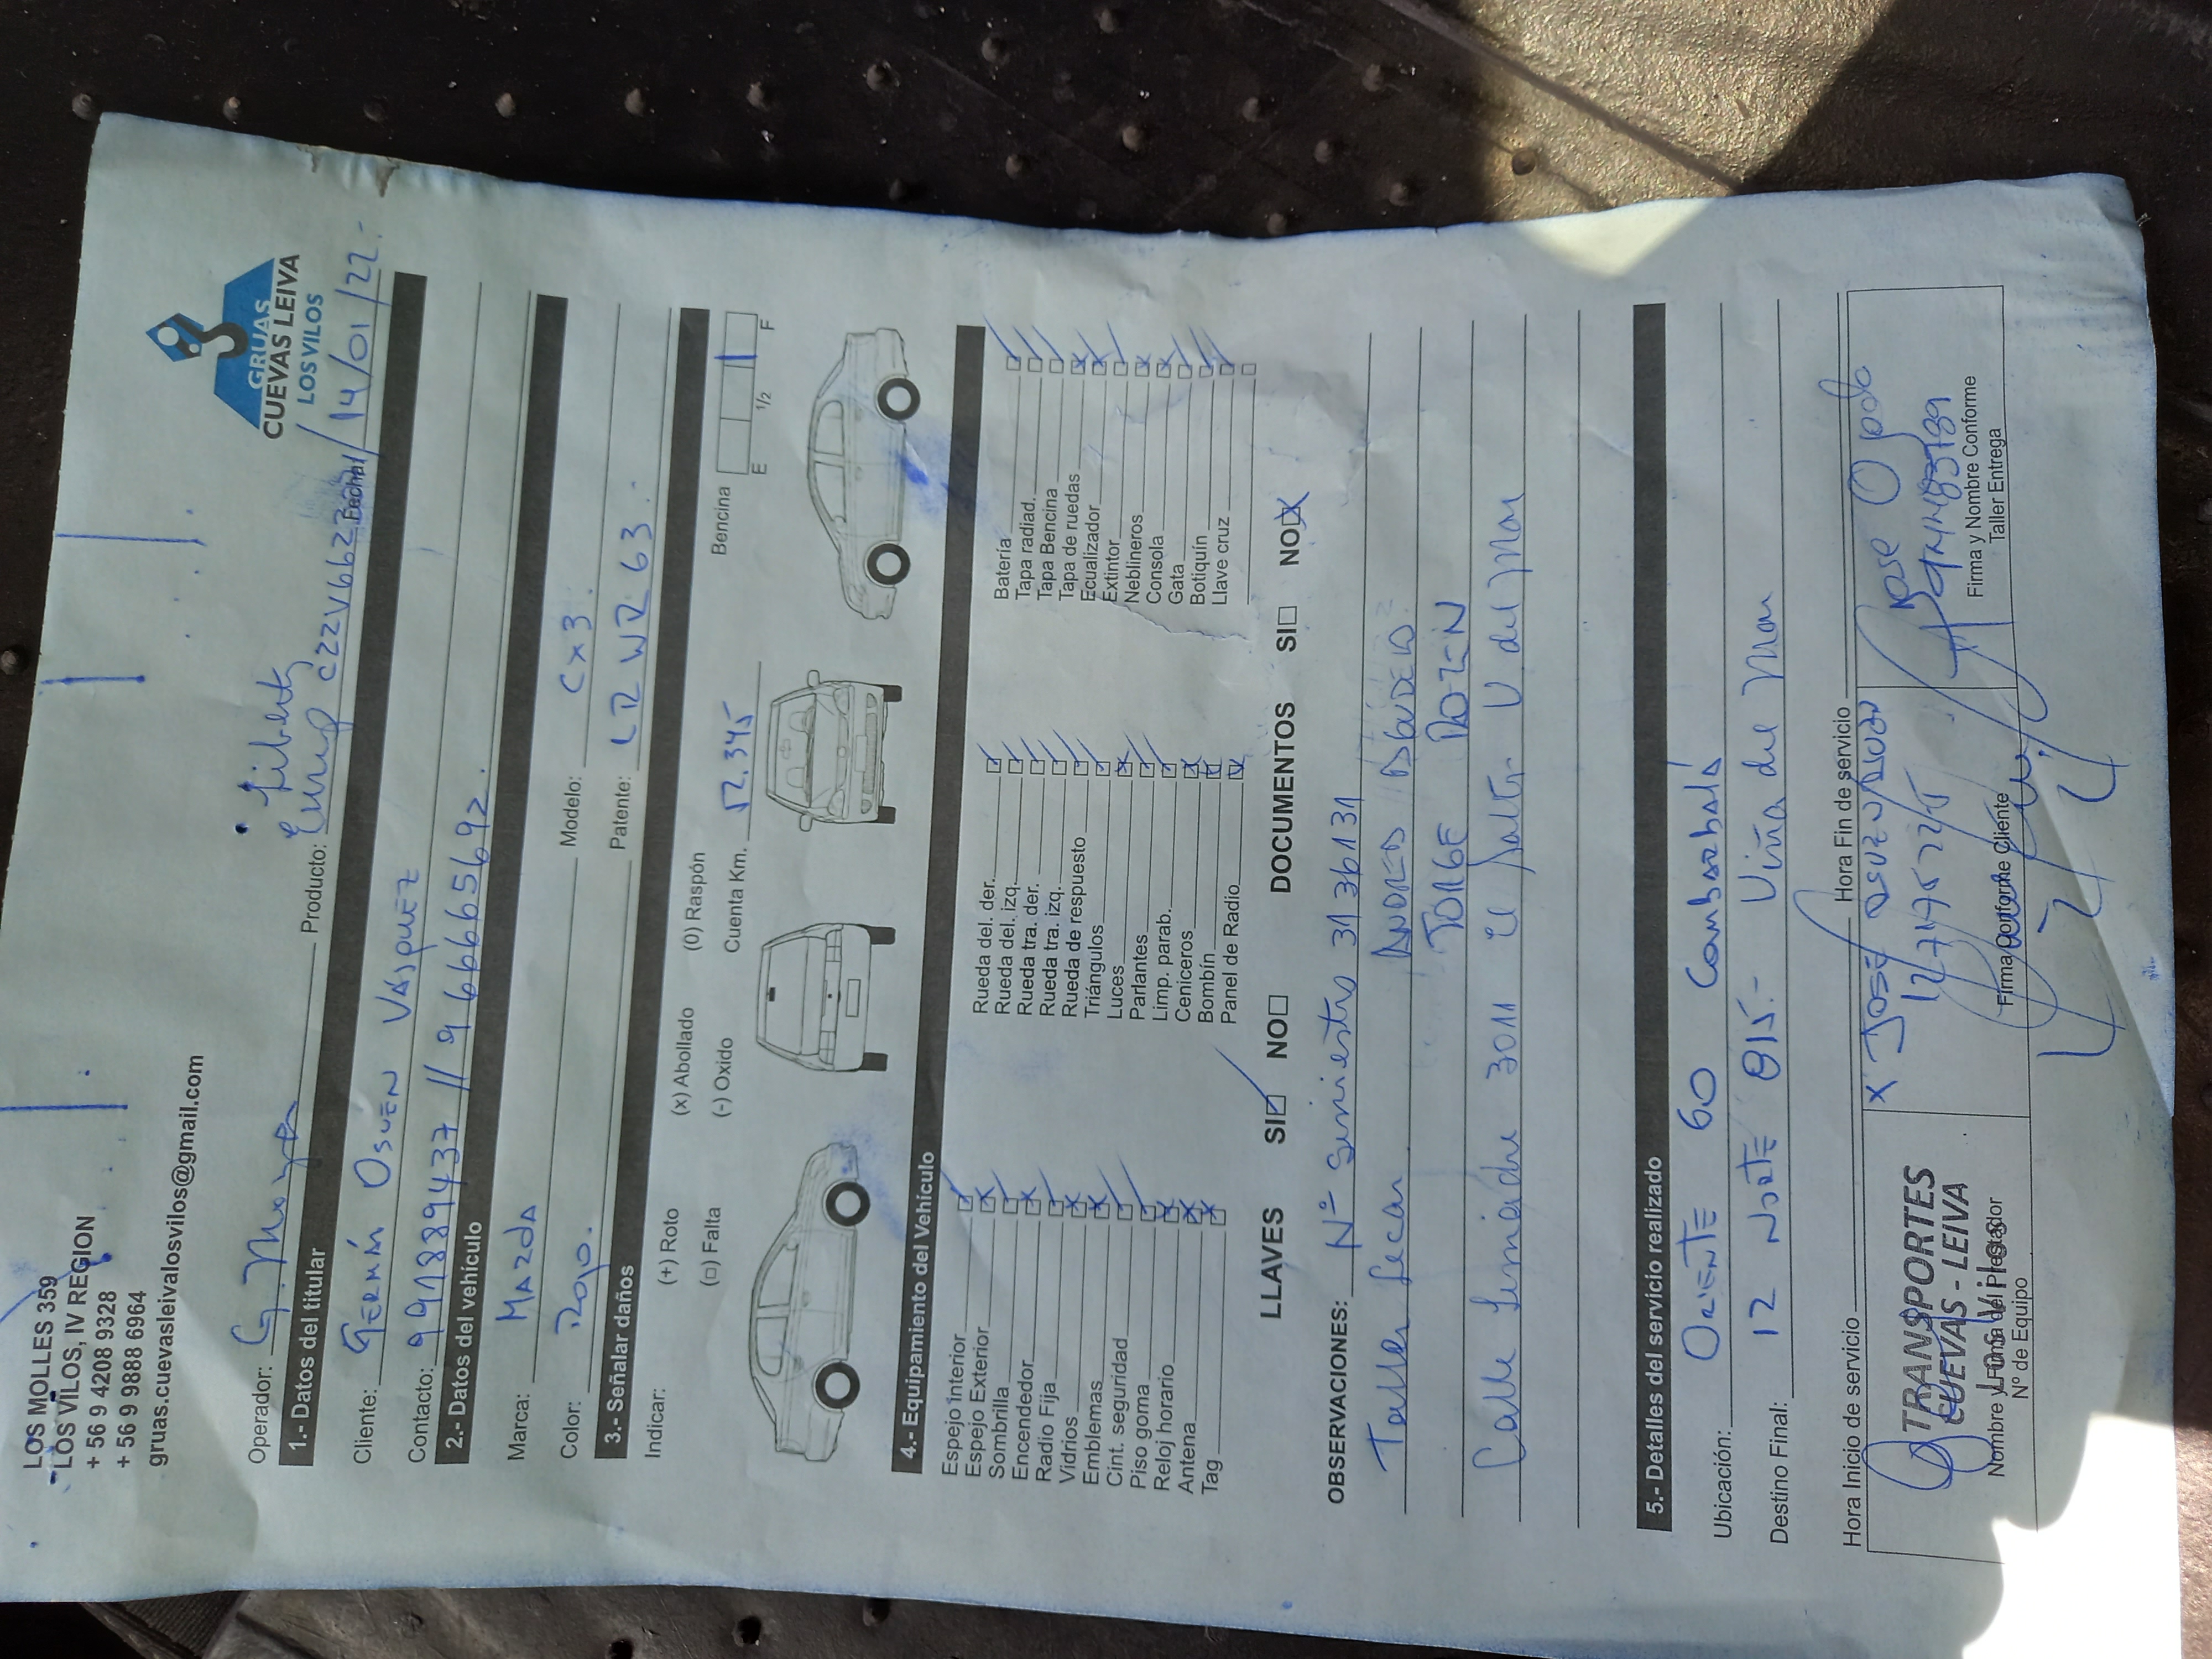 LOS MOLLES 359
LOS VILOS, IV REGION
+ 56 9 4208 9328
+ 56 9 9888 6964
gruas.cuevasleivalosvilos@gmail.com
GRUAS
CUEVAS LEIVA
LOS VILOS
Operador: Producto: C22V6622 Fecha: 14/01/22.-
1.- Datos del titular
Cliente: GERMÁN OSUEN VASQUEZ
Contacto: 991889437 // 9 66665692.
2.- Datos del vehículo
Marca: MAZDA Modelo: CX3.
Color: Rojo. Patente: LRWR63.-
3.- Señalar daños
Indicar: (+) Roto (x) Abollado (0) Raspón Bencina
(□) Falta (-) Oxido Cuenta Km. 52.345 E 1/2 F
4.- Equipamiento del Vehículo
Espejo interior Rueda del. der. Batería
Espejo Exterior Rueda del. izq. Tapa radiad.
Sombrilla Rueda tra. der. Tapa Bencina
Encendedor Rueda tra. izq. Tapa de ruedas
Radio Fija Rueda de respuesto Ecualizador
Vidrios Triángulos Extintor
Emblemas Luces Neblineros
Cint. seguridad Parlantes Consola
Piso goma Limp. parab. Gata
Reloj horario Ceniceros Botiquín
Antena Bombín Llave cruz
Tag Panel de Radio
LLAVES SI NO DOCUMENTOS SI NO
OBSERVACIONES: Nº Siniestro 3136131
Taller Secar ANDRES
JORGE
Calle Limache 3011 el Salto V del Mar
5.- Detalles del servicio realizado
Ubicación: ORIENTE 60 Combarbalá
Destino Final: 12 NORTE 815.- Viña del Mar
Hora Inicio de servicio Hora Fin de servicio
TRANSPORTES
CUEVAS - LEIVA
Los Vilos
Nombre y Firma del Prestador
Nº de Equipo
X JOSÉ
Firma Conforme Cliente
Jose
Firma y Nombre Conforme
Taller Entrega